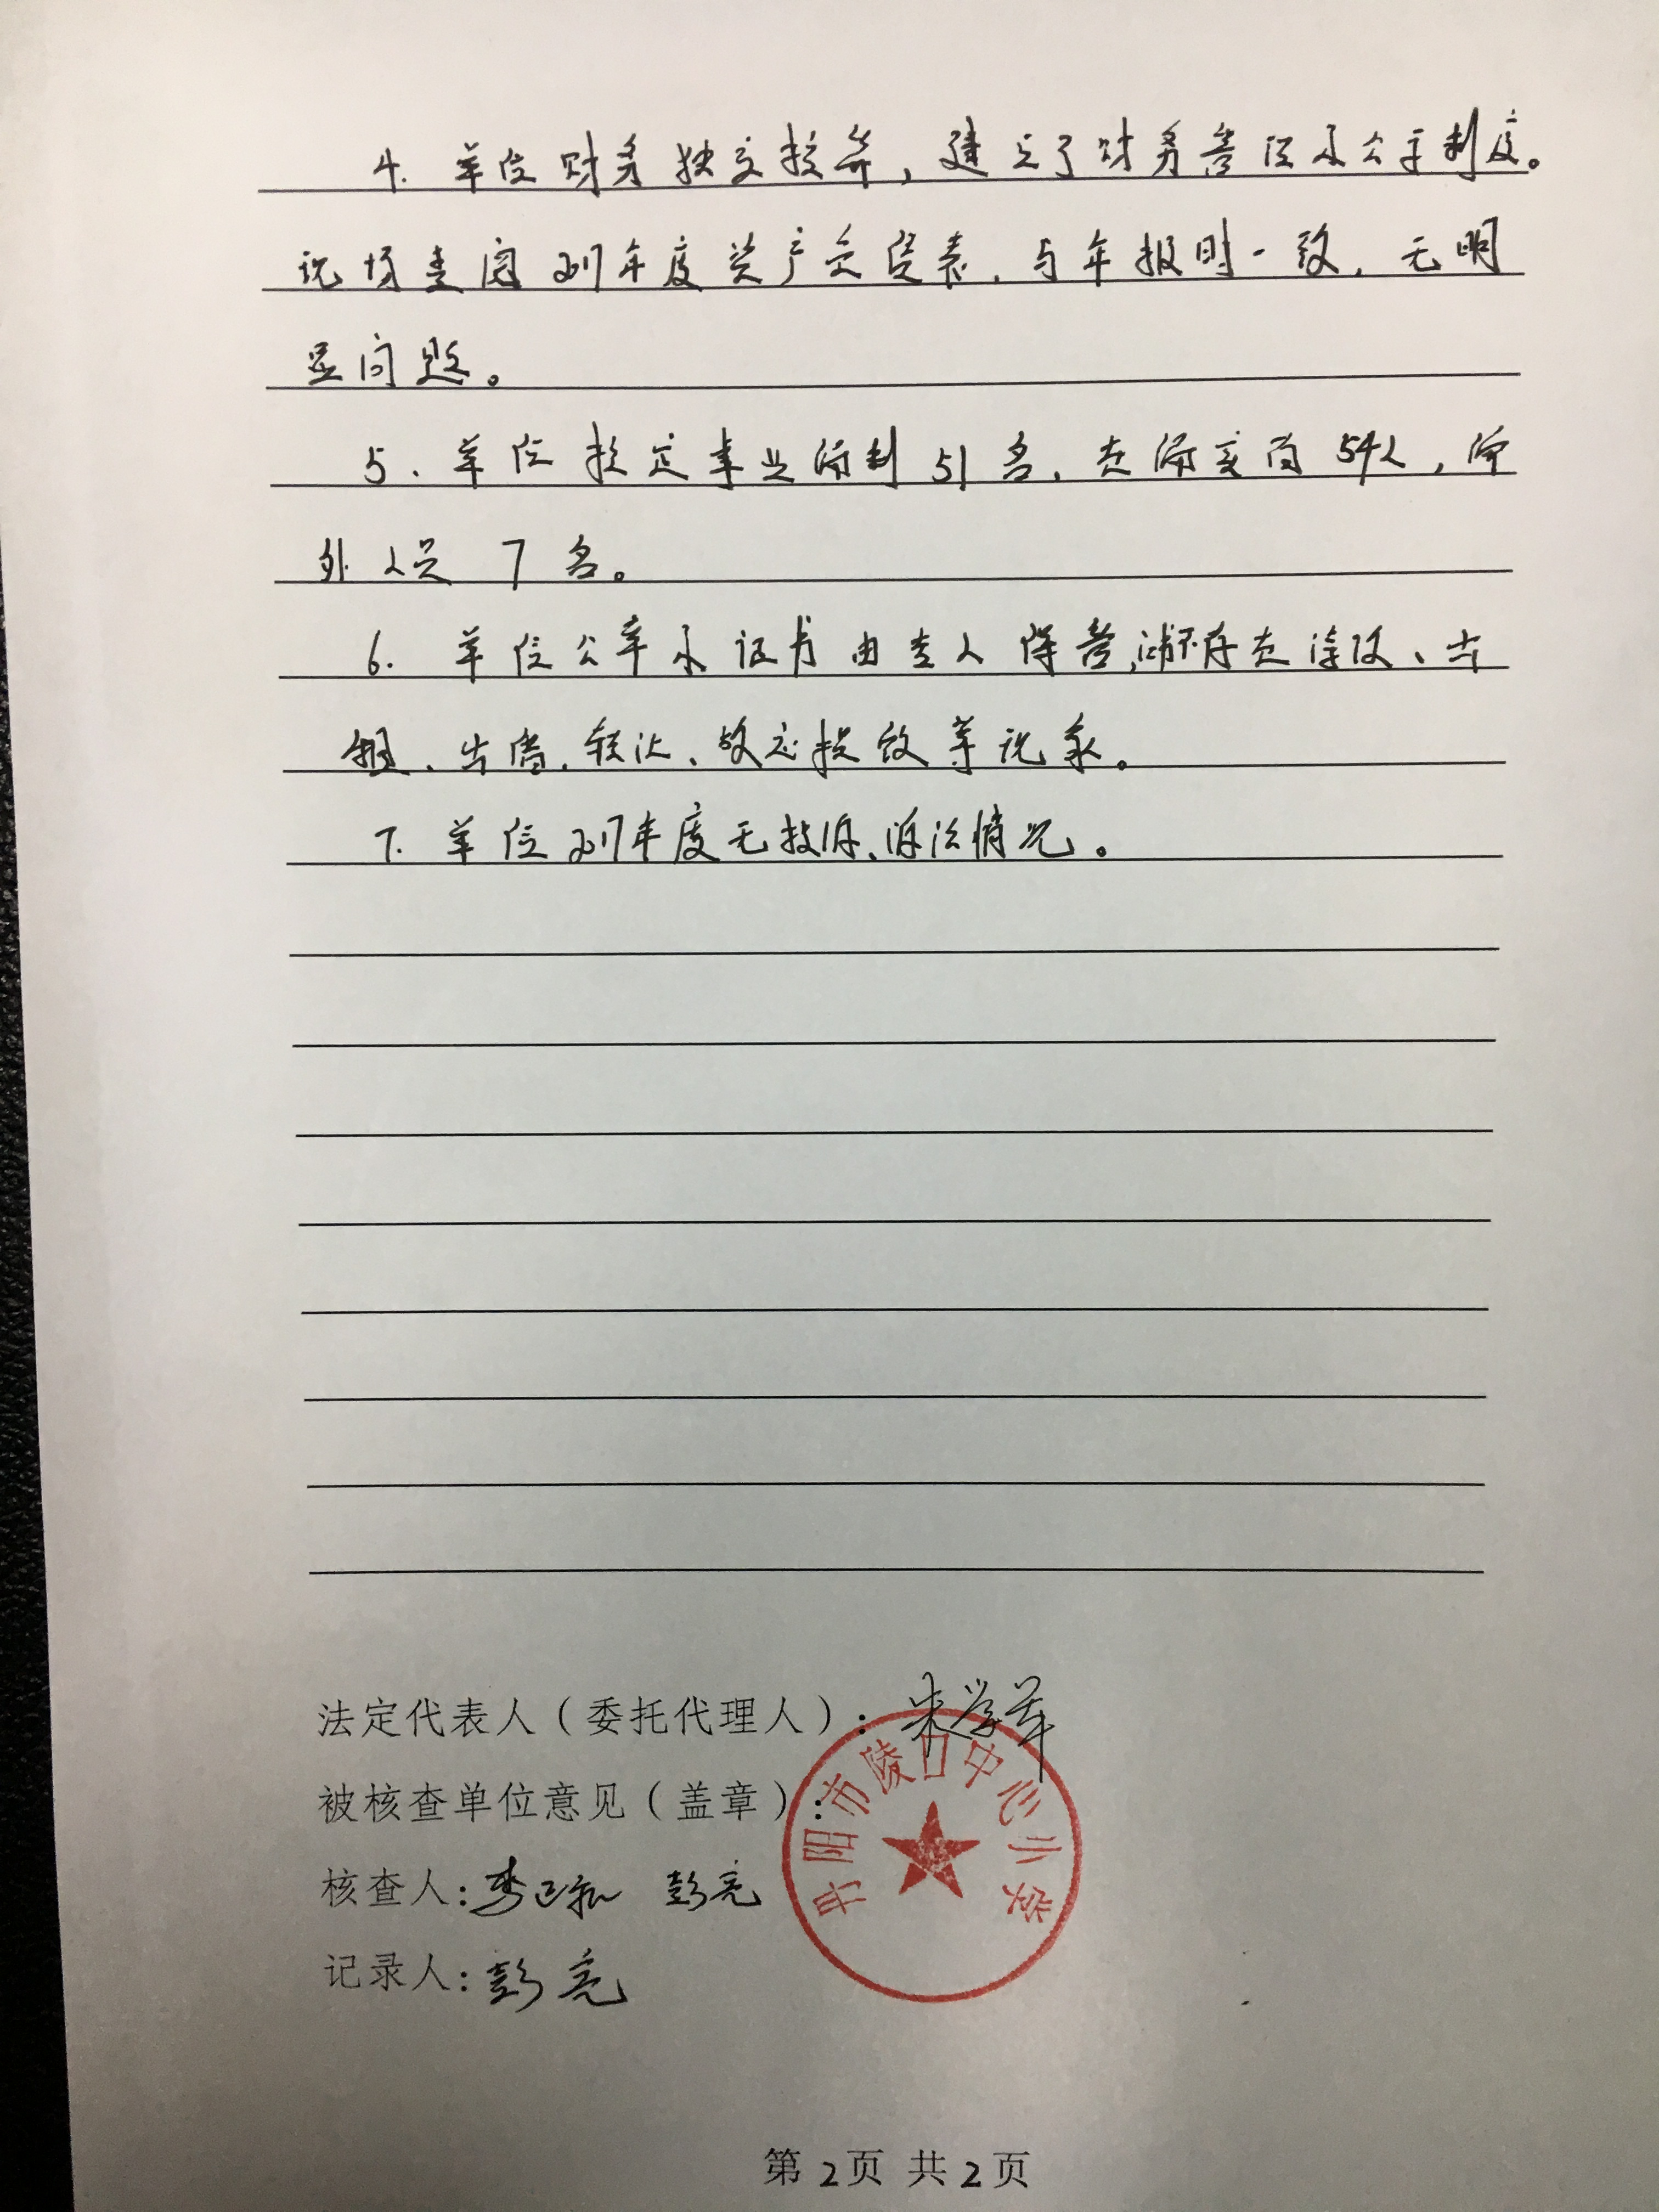 4. 单位财务独立核算，建立了财务管理及公示制度。
现场查阅2017年度资产负债表，与年报时一致，无明
显问题。
5、单位核定事业编制51名，在编实有54人，编
外人员 7 名。
6. 单位公章及证书由专人保管，不存在涂改、出
租、出借、转让、故意损毁等现象。
7. 单位2017年度无投诉、诉讼情况。
法定代表人（委托代理人）：
被核查单位意见（盖章）：
丹阳市陵口中心小学
核查人： 彭亮
记录人：彭亮
第2页 共2页